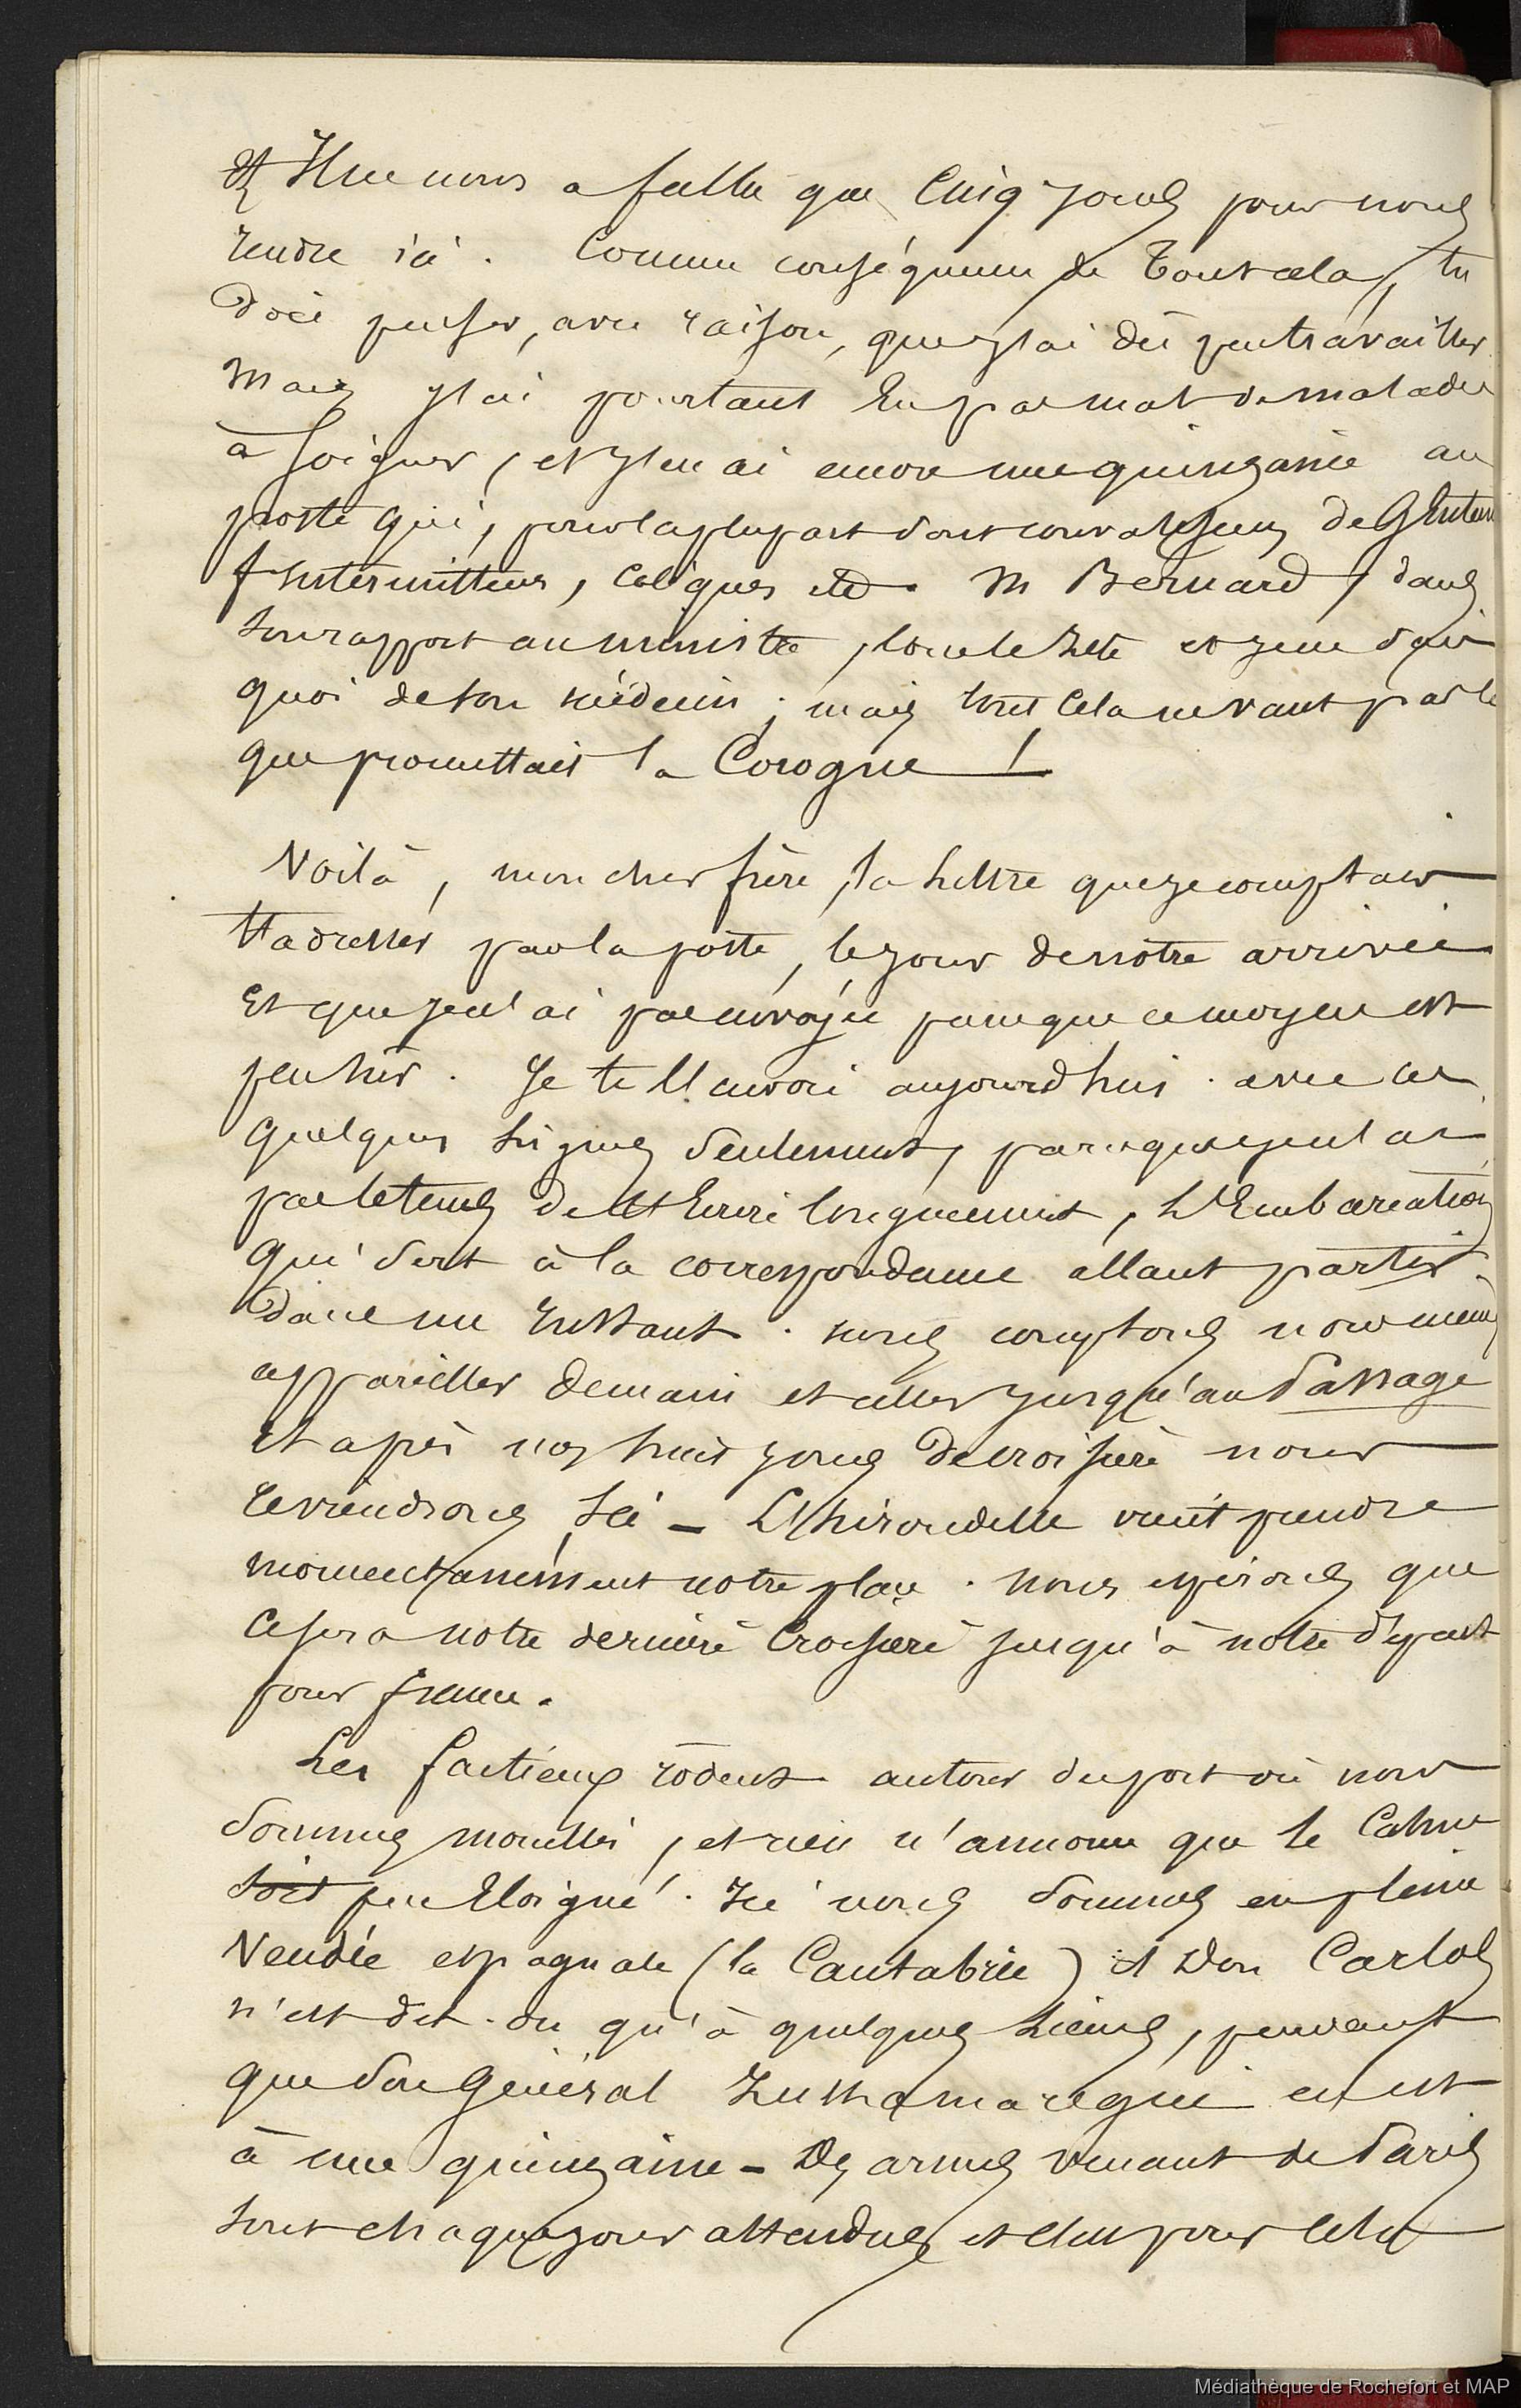 Et Il ne nous a fallu que Cinq jours pour nous
rendre ici. Comme conséquence de tout cela, tu
dois penser, avec raison, que j'ai dû peu travailler
Mais j'ai pourtant eu pas mal de malades
à soigner, et j'en ai encore une quinzaine au
poste qui, pour la plupart sont convalescens de
f intermittens, Coliques etc. M Bernard, dans
son rapport au ministre, loue le zèle et je ne sais
quoi de son médecin ; mais tout cela ne vaut pas ce
que promettait la Corogne !
Voilà, mon cher frère, la lettre que je comptais
t'adresser par la poste, le jour de notre arrivée
Et que je n'ai pas envoyée parce que ce moyen est
peu sûr. Je te l'envoie aujourd'hui. avec ces
quelques lignes seulement, parce que je n'ai
pas le tems de t'écrire longuement, L'Embarcation
qui sert à la correspondance allant partir
dans un Instant. nous comptons nous même
appareiller demain et aller jusqu'au Passage
Et après nos huit jours de croisière nous
reviendrons Ici - L'hirondelle vient prendre
momentanément notre place. nous espérons que
ce sera notre dernière Croisière jusqu'à notre départ
pour france.
Les factieux rôdent autour du port où nous
sommes mouillés, et rien n'annonce que le Calme
soit peu Eloigné. Ici nous sommes en pleine
Vendée espagnole (la Cantabrie) et Don Carlos
n'est dit-on qu'à quelques lieues, pendant
que son Général Zumalacaregui en est
à une quinzaine - Des armes venant de Paris
sont chaque jour attendues et c'est pour cela